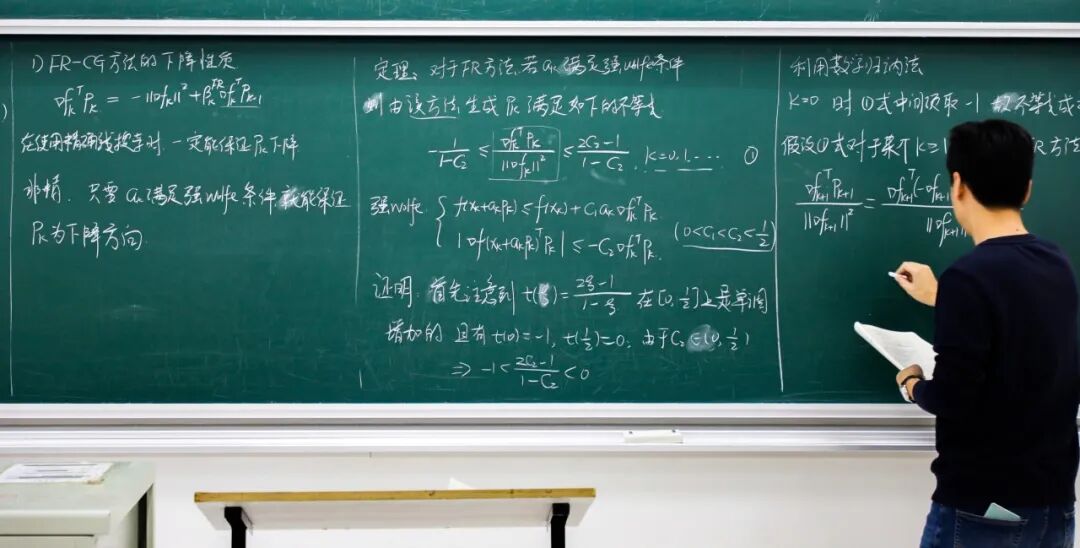 1) FR-CG方法的下降性质
∇f_k^T P_k = -||∇f_k||² + β_k^{FR} ∇f_k^T P_{k-1}
在使用精确线搜索时, 一定能保证P_k下降
非精. 只要 α_k满足强wolfe 条件就能保证
P_k为下降方向.
定理: 对于FR方法, 若α_k满足强wolfe条件
则由该方法生成P_k满足如下的不等式
-1/(1-C₂) ≤ ∇f_k^T P_k/||∇f_k||² ≤ (2C₂-1)/(1-C₂). k=0.1.… ①
强wolfe. { f(x_k+α_kP_k) ≤ f(x_k) + C₁α_k∇f_k^T P_k
|∇f(x_k+α_kP_k)^T P_k| ≤ -C₂∇f_k^T P_k. (0<C₁<C₂<1/2)
证明: 首先注意到 t(ξ) = (2ξ-1)/(1-ξ) 在[0,1/2]上是单调
增加的 且有 t(0)=-1, t(1/2)=0. 由于C₂∈(0,1/2)
⇒ -1 < (2C₂-1)/(1-C₂) < 0
利用数学归纳法
k=0 时①式中间项取-1 故不等式成
假设①式对于某个 k≥ R方法
∇f_{k+1}^T P_{k+1}/||∇f_{k+1}||² = ∇f_{k+1}^T(-∇f_{k+1}/||∇f_{k+1}||